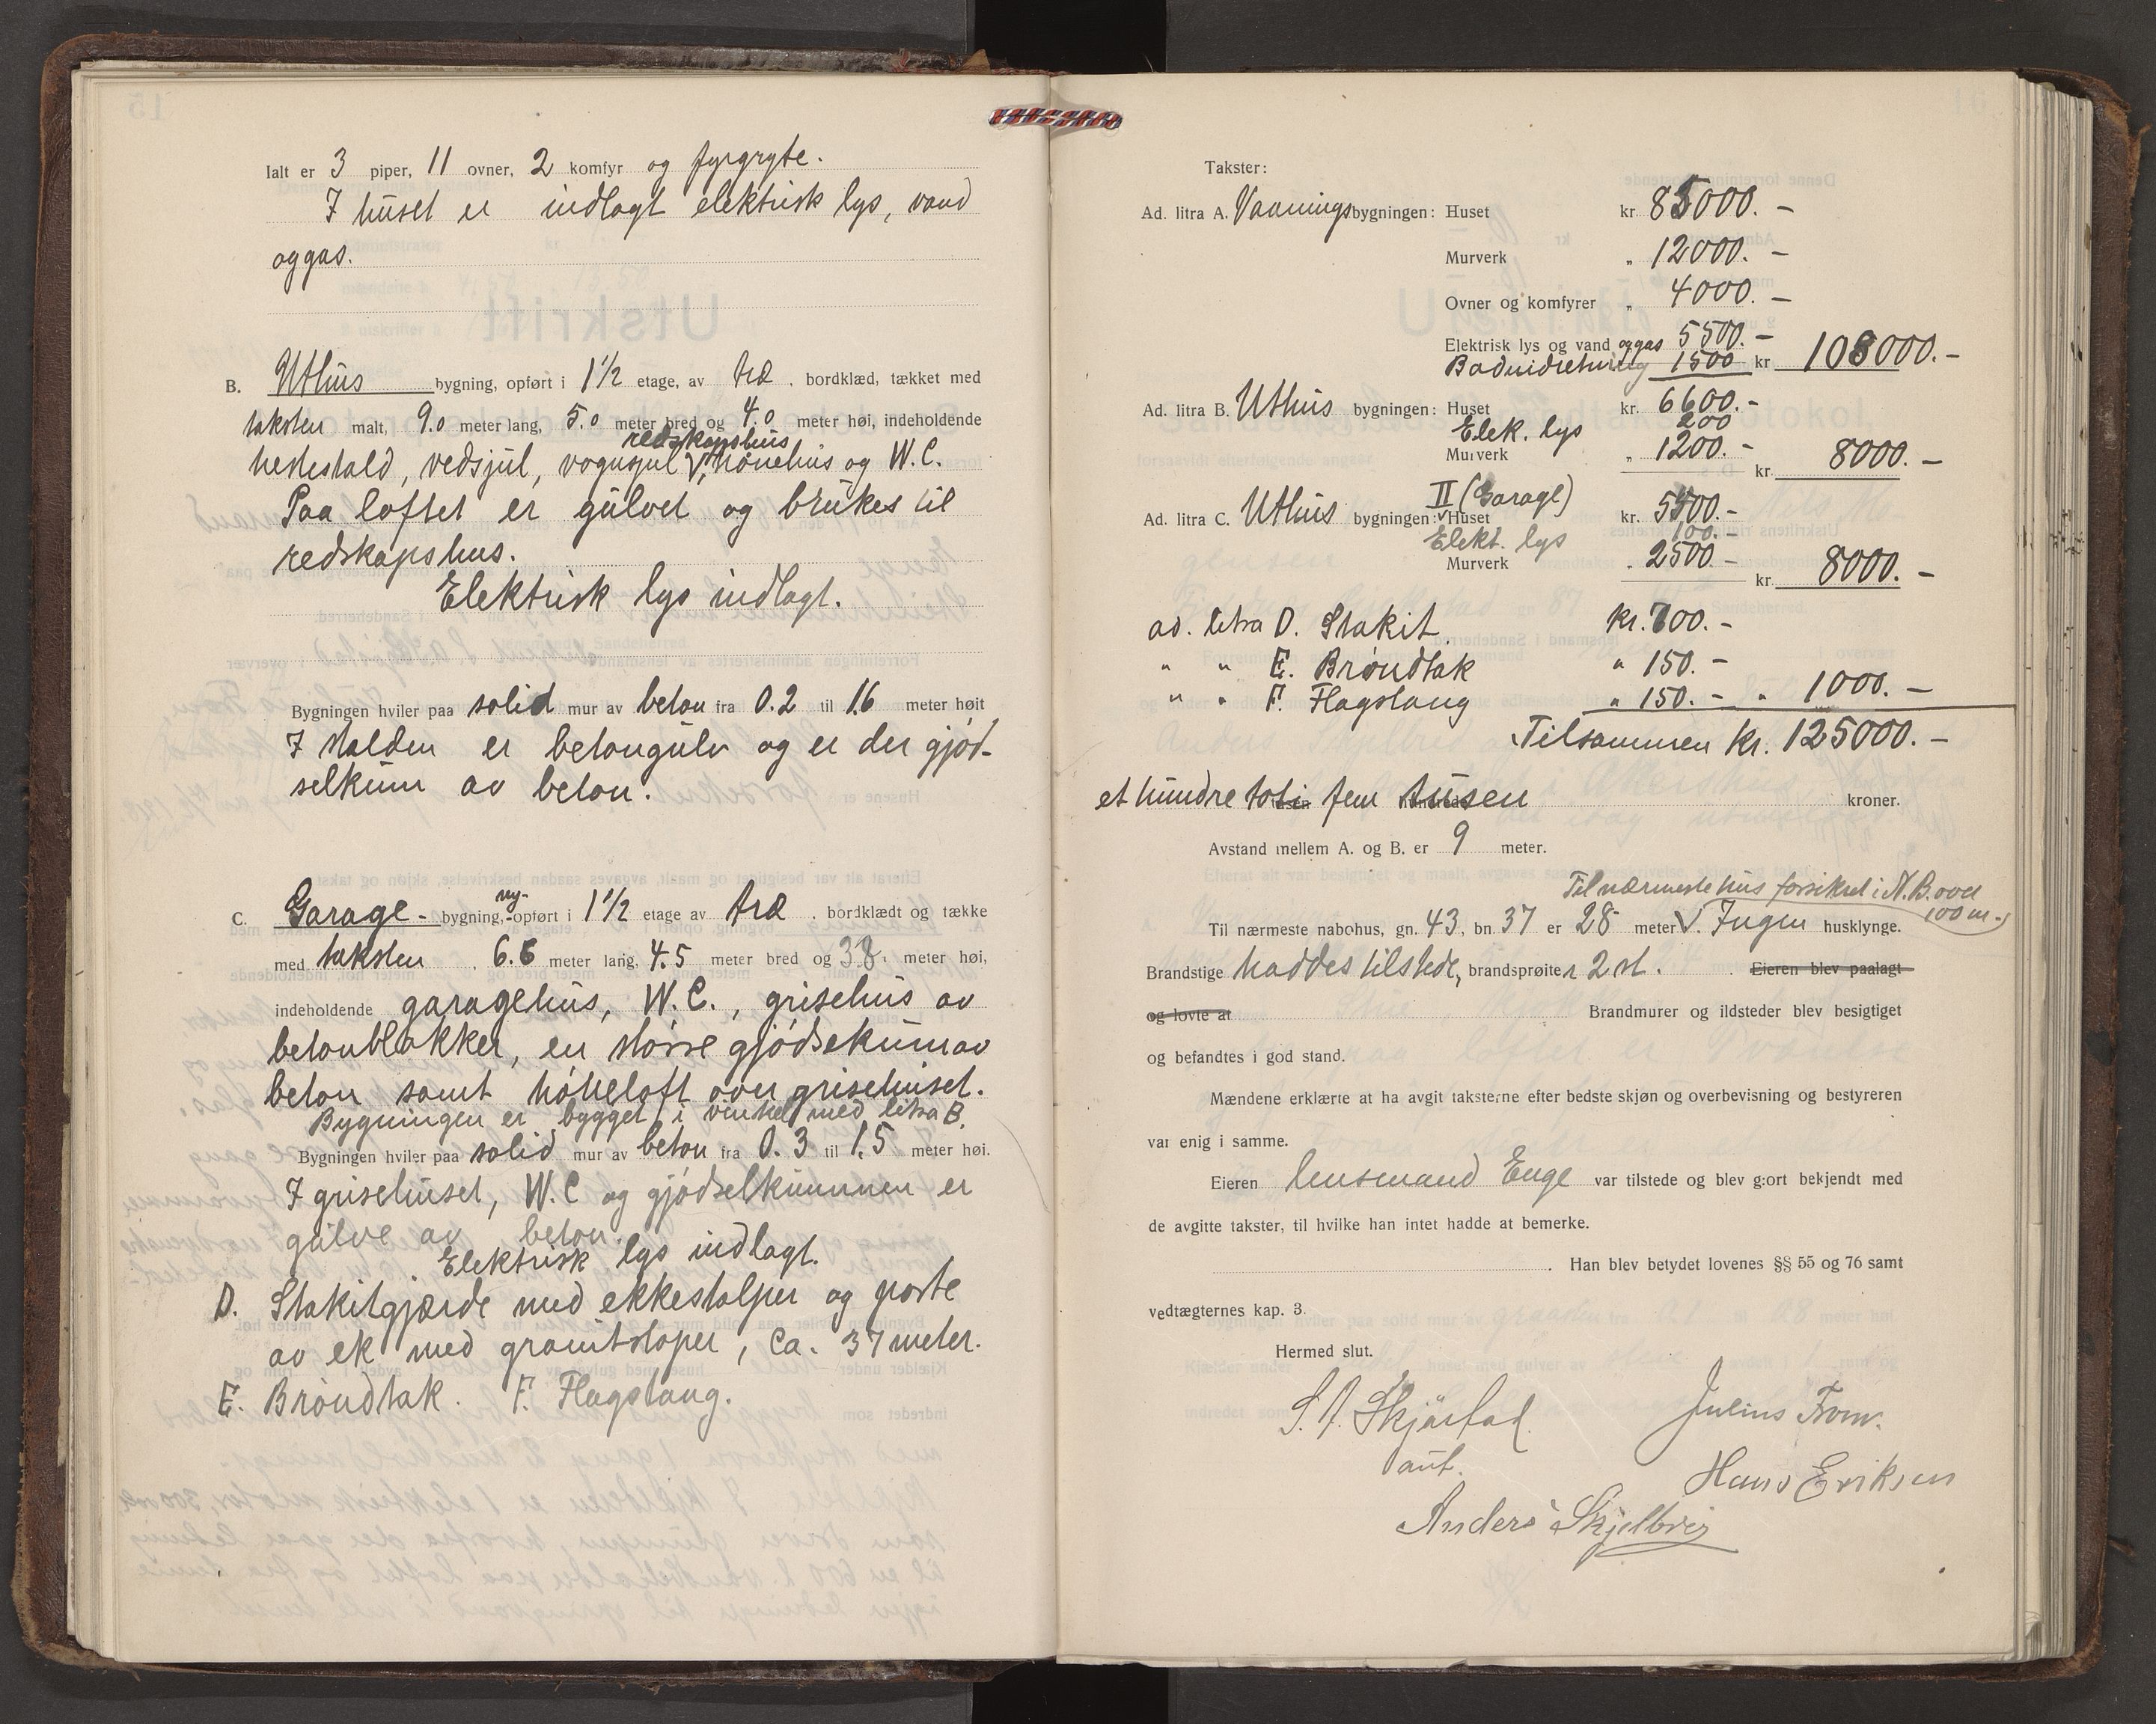 Ialt er 3 piper, 11 ovner, 2 komfyr og fyrgryte.
I huset er indlagt elektrisk lys, vand
og gas.
B. Uthus bygning, opført i 1 1/2 etage, av træ, bordklæd, tækket med
taksten malt, 9.0 meter lang, 5.0 meter bred og 4.0 meter høi, indeholdende
redskapshus
hestestald, vedsjul, vognsjul V, hönehus og W.C.
Paa loftet er gulvet og brukes til
redskapshus.
Elektrisk lys indlagt.
Bygningen hviler paa solid mur av beton fra 0.2 til 1.6 meter høit
I stalden er betongulv og er der gjød-
selkum av beton.
ny-
C. Garage- bygning, opført i 1 1/2 etage av træ, bordklædt og tække
med taksten 6.6 meter lang, 4.5 meter bred og 3.8. meter høi,
indeholdende garagehus, W.C., grisehus av
betonblokker, en större gjödsekum av
beton samt höneloft over grisehuset.
Bygningen er bygget i vinkel med litra B.
Bygningen hviler paa solid mur av beton fra 0.3 til 1.5 meter høi.
I grisehuset, W.C og gjödselkummen er
gulve av beton.
Elektrisk lys indlagt.
D. Stakitgjærde med ekkestolper og porte
av ek med granitstoper, ca. 37 meter.
E. Bröndtak. F. Flagstang.
Takster:
Ad. litra A. Vaanings bygningen: Huset kr. 85000.-
Murverk " 12000.-
Ovner og komfyrer " 4000.-
Elektrisk lys og vand og gas 5500.-
Badeindretning 1500 kr 108000.-
Ad. litra B. Uthus bygningen: Huset kr. 6600.-
Elek. lys 200
Murverk " 1200.- kr. 8000.-
II (Garage)
Ad. litra C. Uthus bygningen: V Huset kr. 5400.-
Elekt. lys 100.-
Murverk " 2500.- kr. 8000.-
ad. litra D. Stakit kr. 700.-
" " E. Bröndtak " 150.-
" " F. Flagstang " 150.- " 1000.-
Tilsammen kr. 125000.-
et hundre toti fem tusen kroner.
Avstand mellem A. og B. er 9 meter.
Til nærmeste hus forsikret i N.B. over
100 m.
Til nærmeste nabohus, gn. 43, bn. 37 er 28 meter V. Ingen husklynge.
Brandstige haddes tilstede, brandsprøiter 2 st. Eieren blev paalagt
og lovte at Brandmurer og ildsteder blev besigtiget
og befandtes i god stand.
Mændene erklærte at ha avgit taksterne efter bedste skjøn og overbevisning og bestyreren
var enig i samme.
Eieren lensmand Enge var tilstede og blev gjort bekjendt med
de avgitte takster, til hvilke han intet hadde at bemerke.
Han blev betydet lovenes §§ 55 og 76 samt
vedtægternes kap. 3.
Hermed slut.
Julius From.
aut.
Hans Eriksen
Anders Skjelbrei